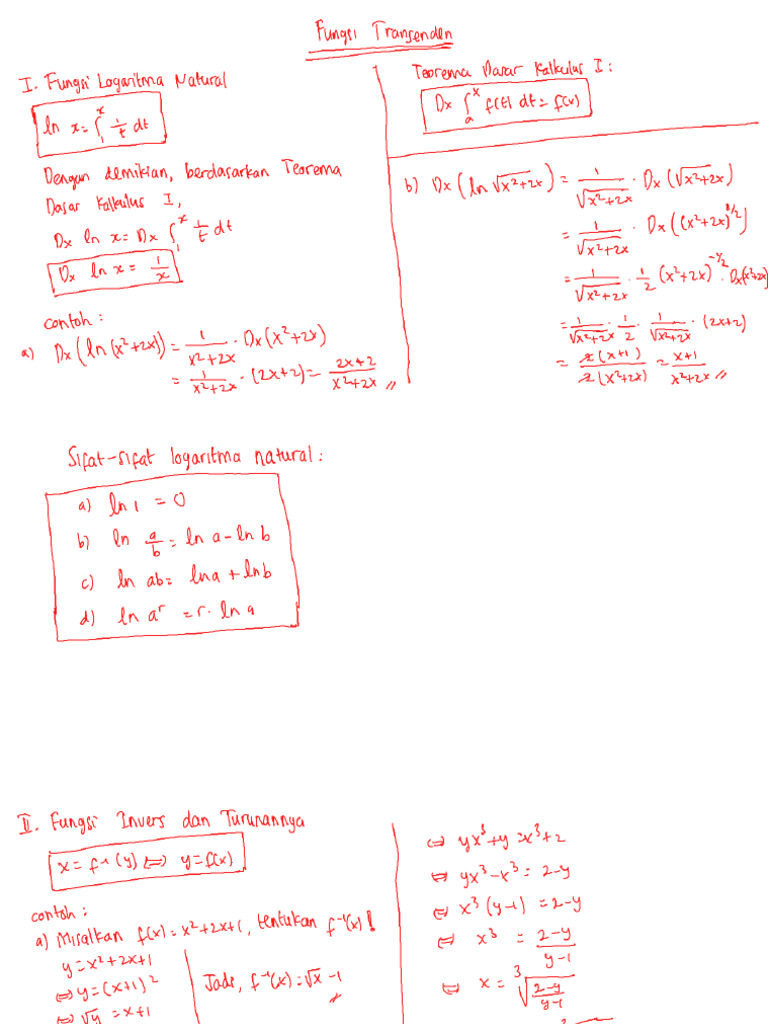 Fungsi Transenden
I. Fungsi Logaritma Natural
ln x = ∫₁ˣ 1/t dt
Dengan demikian, berdasarkan Teorema
Dasar Kalkulus I,
Dx ln x = Dx ∫₁ˣ 1/t dt
Dx ln x = 1/x
contoh :
a) Dx (ln (x²+2x)) = 1/(x²+2x) · Dx (x²+2x)
= 1/(x²+2x) · (2x+2) = (2x+2)/(x²+2x) //
Teorema Dasar Kalkulus I :
Dx ∫ₐˣ f(t) dt = f(x)
b) Dx (ln √(x²+2x)) = 1/√(x²+2x) · Dx (√(x²+2x))
= 1/√(x²+2x) · Dx ((x²+2x)^(1/2))
= 1/√(x²+2x) · 1/2 (x²+2x)^(-1/2) · Dx(x²+2x)
= 1/√(x²+2x) · 1/2 · 1/√(x²+2x) · (2x+2)
= 2(x+1)/2(x²+2x) = (x+1)/(x²+2x) //
Sifat-sifat logaritma natural :
a) ln 1 = 0
b) ln a/b = ln a - ln b
c) ln ab = ln a + ln b
d) ln aʳ = r · ln a
II. Fungsi Invers dan Turunannya
x = f⁻¹(y) ⇔ y = f(x)
contoh :
a) Misalkan f(x) = x²+2x+1, tentukan f⁻¹(x) !
y = x²+2x+1
⇔ y = (x+1)²
⇔ √y = x+1
Jadi, f⁻¹(x) = √x - 1
⇔ yx³ + y = x³ + 2
⇔ yx³ - x³ = 2-y
⇔ x³ (y-1) = 2-y
⇔ x³ = (2-y)/(y-1)
⇔ x = ³√((2-y)/(y-1))